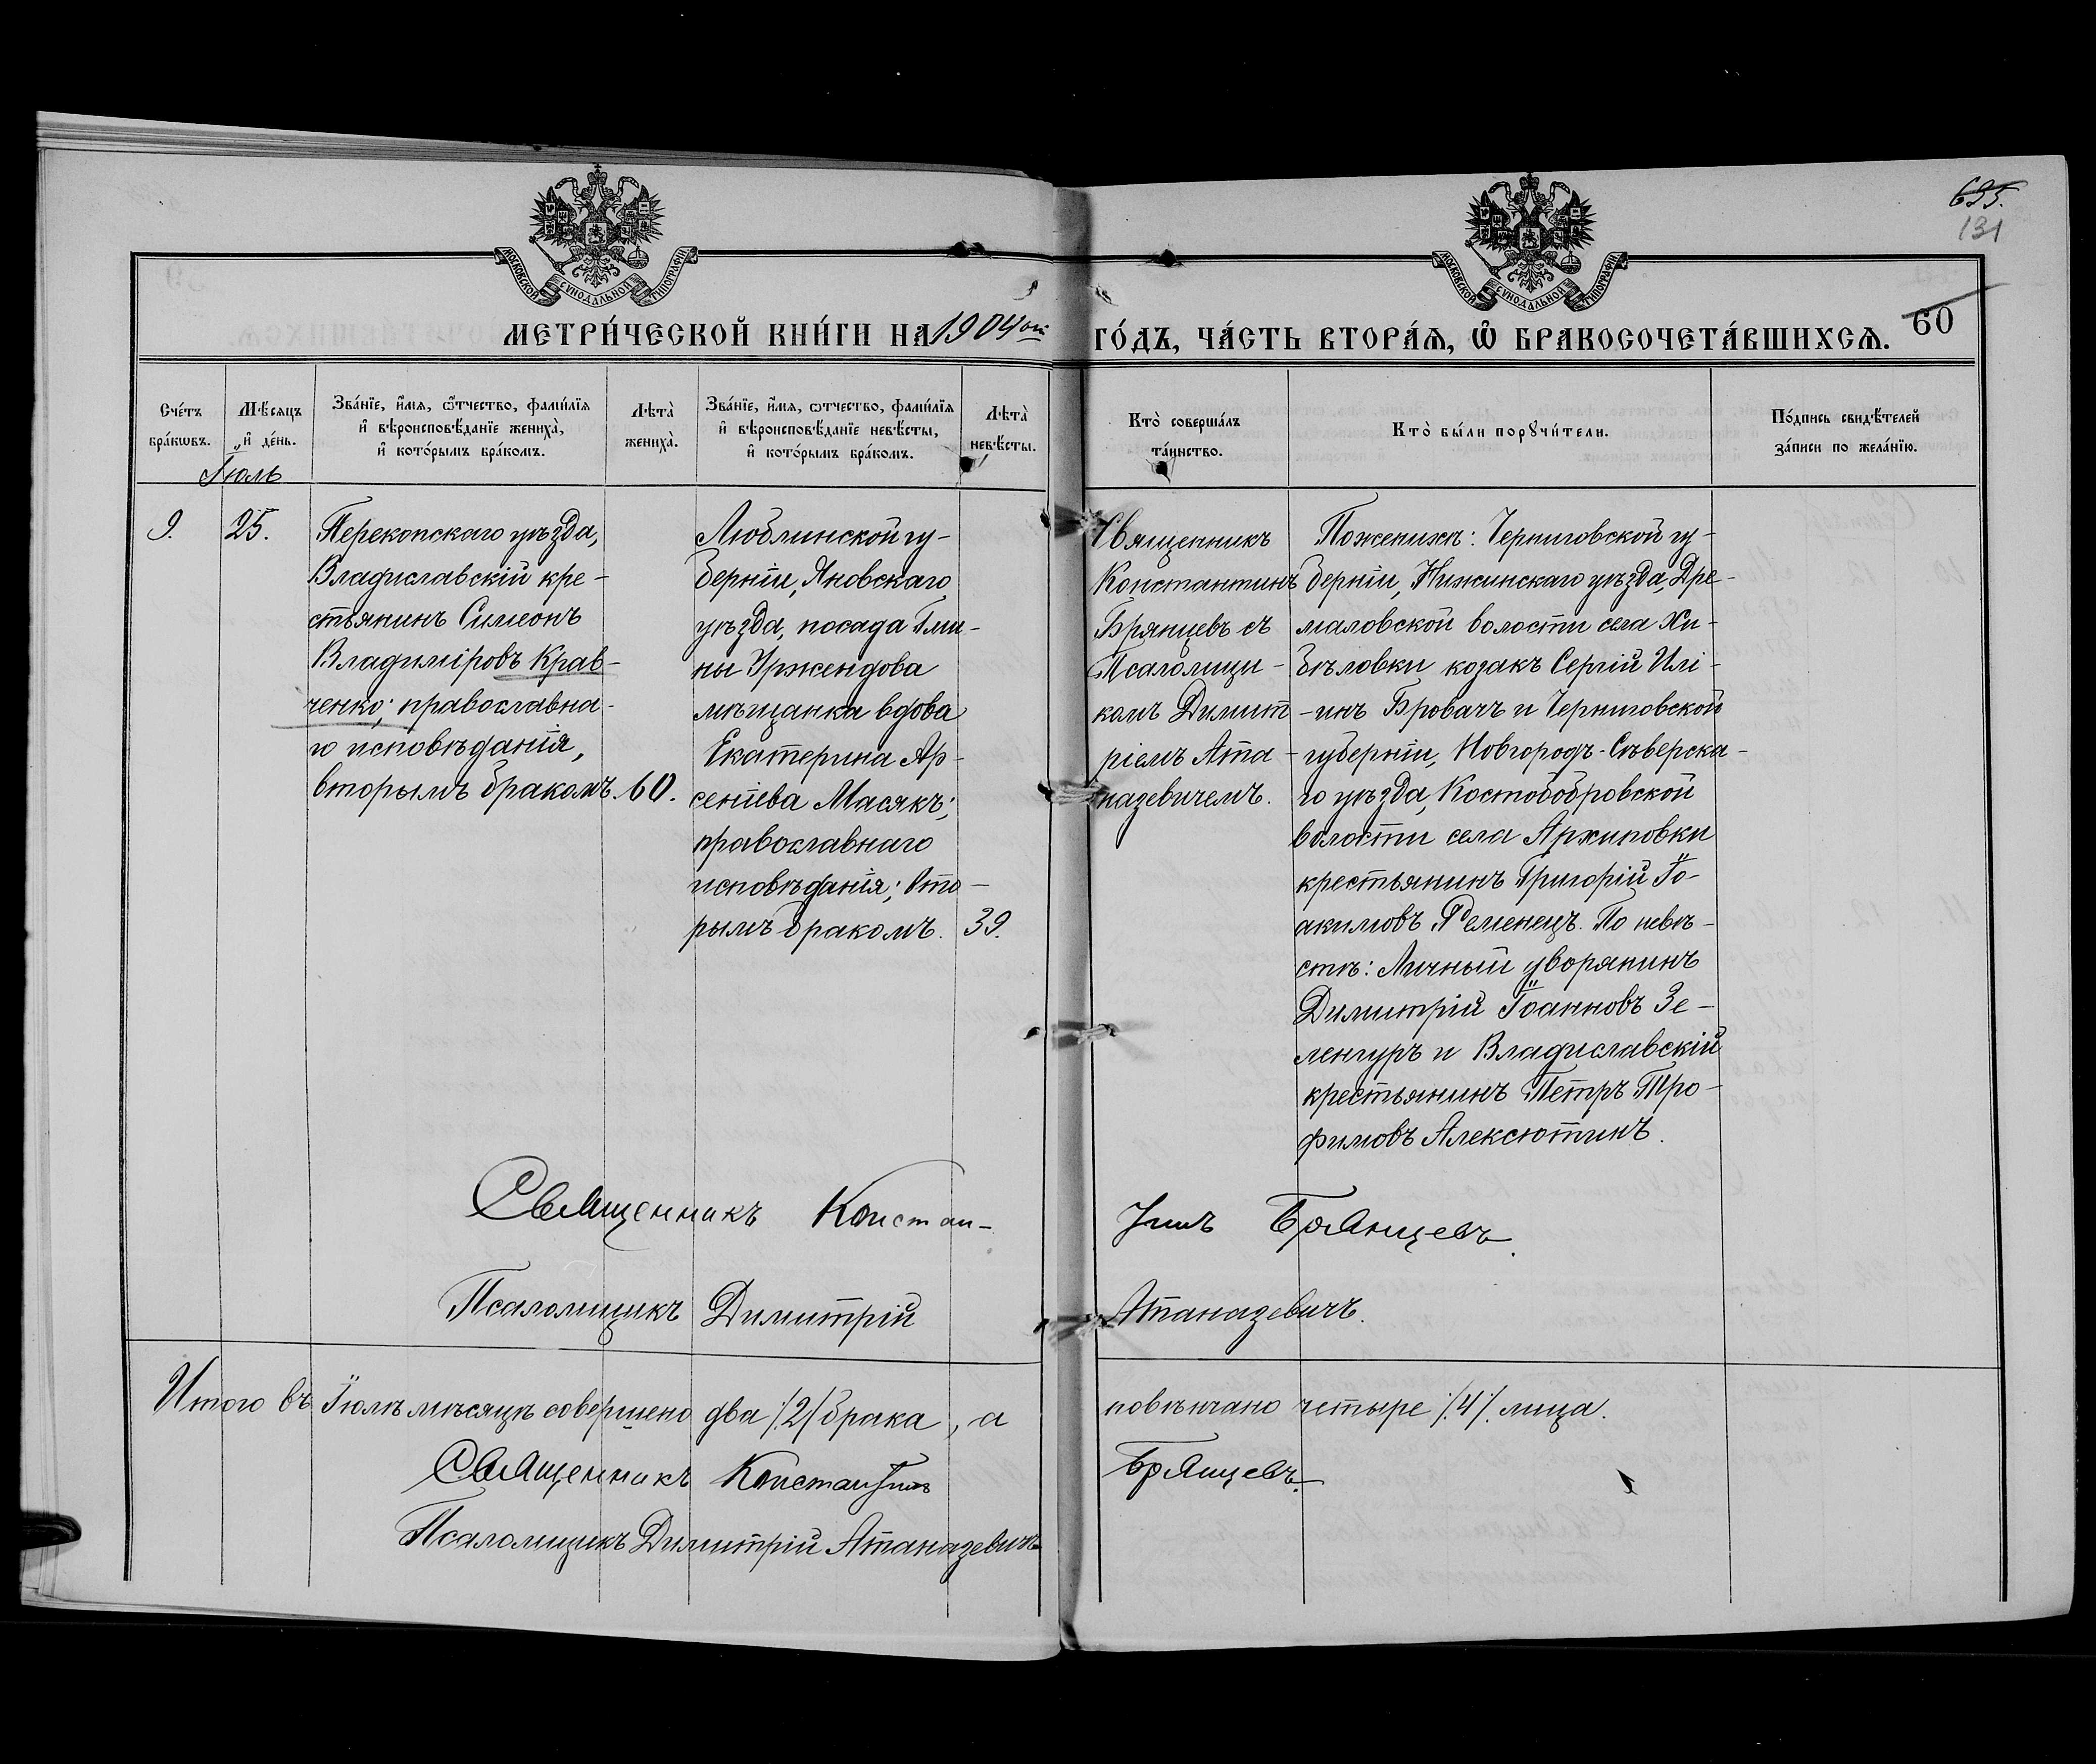 МОСКОВСКОЙ СУНОДАЛЬНОЙ ТИПОГРАФІИ
МОСКОВСКОЙ СУНОДАЛЬНОЙ ТИПОГРАФІИ
695.
131
МЕТРИ́ЧЕСКОЙ КНИ́ГИ НА 1904ый ГО́ДЪ, ЧА́СТЬ ВТОРА́Ѧ, Ѡ҆ БРАКОСОЧЕТА́ВШИХСѦ. 60
Сче́тъ
бра́кѡвъ.
Мѣ́сяцъ
и҆ де́нь.
Зва́нїе, и҆́мя, ѻ҆́тчество, фами́лїя
и҆ вѣроисповѣ́данїе жениха̀,
и҆ кото́рымъ бра́комъ.
Лѣта̀
жениха̀.
Зва́нїе, и҆́мя, ѻтчество, фами́лїя
и҆ вѣроисповѣ́данїе невѣ́сты,
и҆ кото́рымъ бра́комъ.
Лѣта̀
невѣ́сты.
Кто̀ соверша́лъ
та́инство.
Кто̀ бы́ли порꙋчи́тели.
По́дпись свидѣ́телей
за́писи по жела́нїю.
Іюль
9.
25.
Перекопскаго уѣзда,
Владиславскій кре-
стьянинъ Симеонъ
Владиміровъ Крав-
ченко; православна-
го исповѣданія,
вторымъ бракомъ.
60.
Люблинской гу-
берніи, Яновскаго
уѣзда, посада Гми-
ны Уржендова
мѣщанка вдова
Екатерина Ар-
сеніева Масякъ;
православнаго
исповѣданія; вто-
рымъ бракомъ.
39.
Священникъ
Константинъ
Брянцевъ съ
Псаломщи-
комъ Димит
ріемъ Ата-
назевичемъ.
По женихѣ: Черниговской гу-
берніи, Нѣжинскаго уѣзда, Дре-
маловской волости села Хи-
бѣловки козакъ Сергій Илі-
-инъ Бровачъ и Черниговской
губерніи, Новгородъ-Сѣверска-
го уѣзда, Костобобровской
волости села Архиповки
крестьянинъ Григорій Іо-
акимовъ Ременецъ. По невѣ-
стѣ: Личный дворянинъ
Димитрій Іоанновъ Зе-
ленгуръ и Владиславскій
крестьянинъ Петръ Тро-
фимовъ Алексютинъ.
Священникъ Констан-тинъ Брянцевъ.
Псаломщикъ Димитрій Атаназевичъ.
Итого въ Іюлѣ мѣсяцѣ совершено два /2/ брака, а повѣнчано четыре /4/. лица.
Священникъ Константинъ Брянцевъ.
Псаломщикъ Димитрій Атаназевичъ